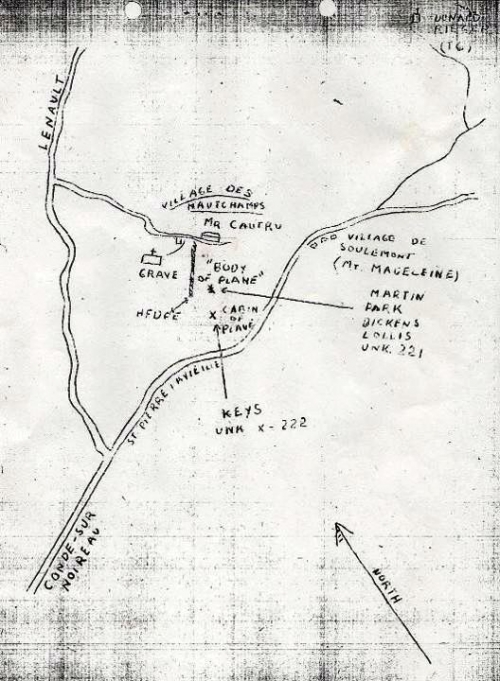 LENAULT
(TG)
VILLAGE DES
HAUTCHAMPS
MR CAUTRU
VILLAGE DE
SOULEMONT
(MT. MAGELEINE)
GRAVE
"BODY
OF PLANE"
HEDGE
X CABIN
OF
PLANE
MARTIN
PARK
DICKENS
LOLLIS
UNK. 221
ST PIERRE LA VIEILLE
KEYS
UNK X-222
CONDE-SUR
NOIREAU
NORTH